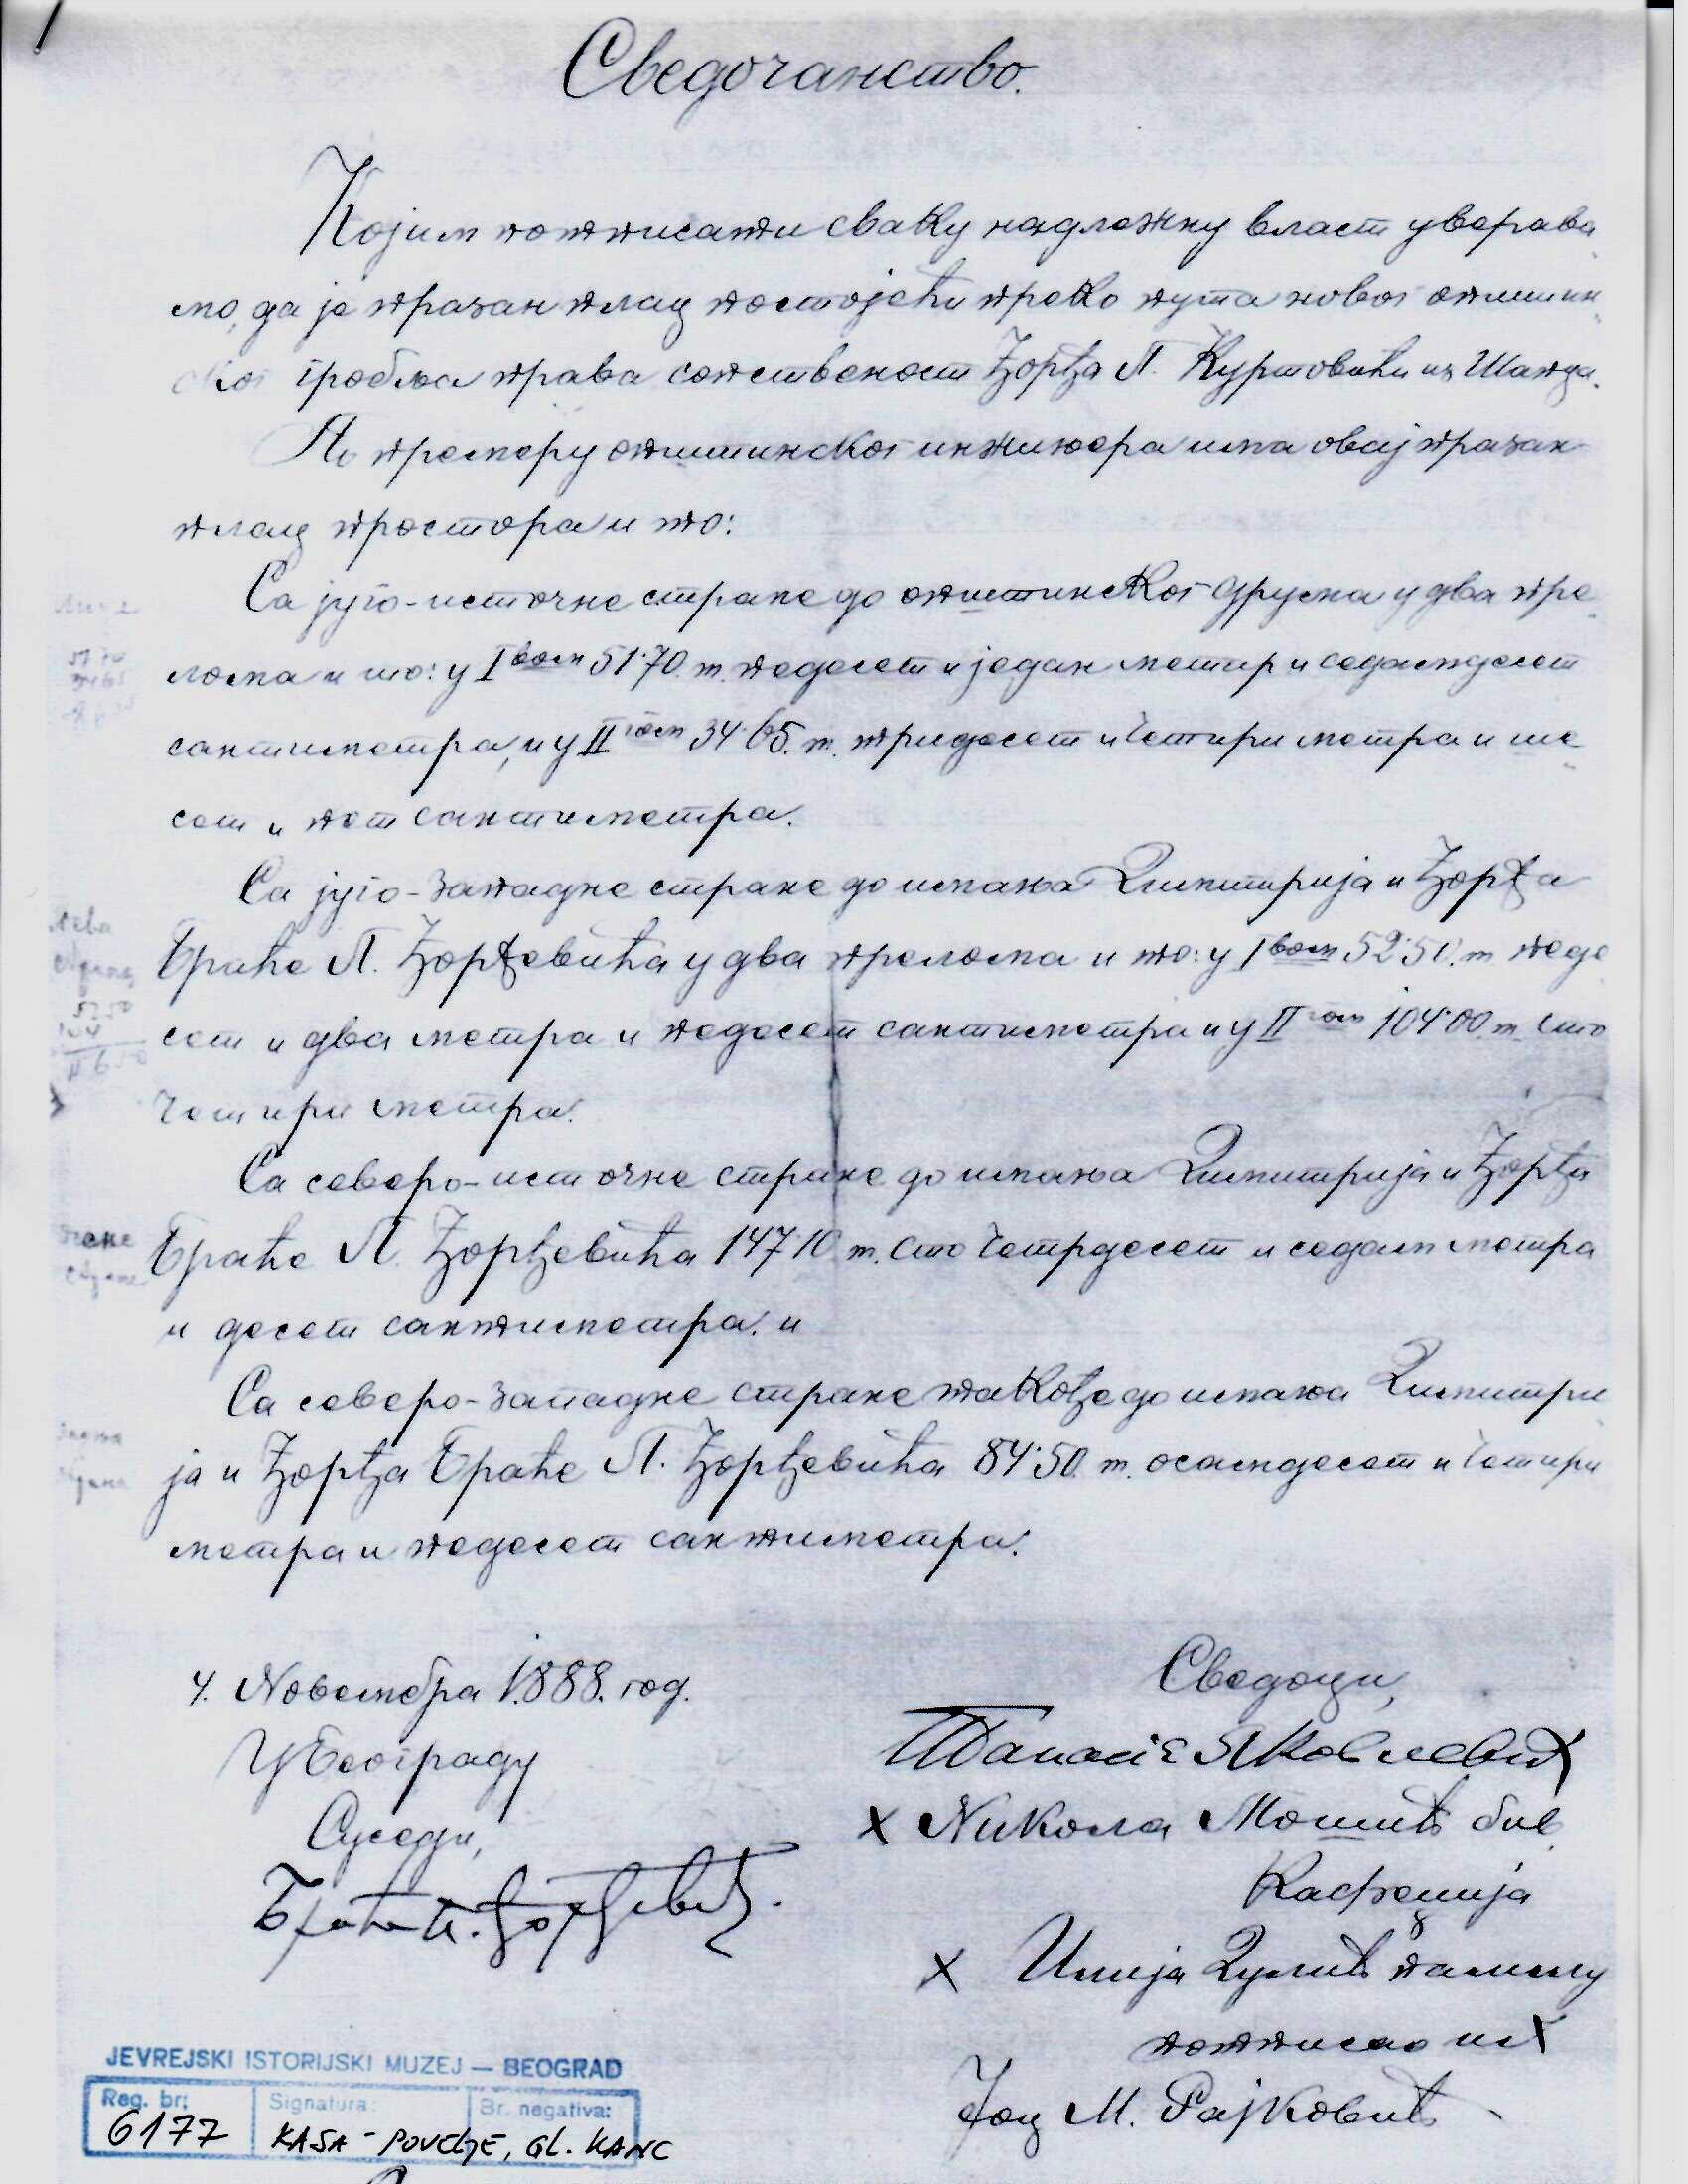 Сведочанство.
Којим потписати сваку надлежну власт уверава
мо, да је празан плац постојећи преко пута новог општин
ског гробља права сопственост Ђорђа П. Куртовића из Шапца.
По премеру општинског инжињера има овај празан
плац простора и то:
Са југо-источне стране до општинског друма у два пре
лома и то: у I вом 51·70. m. педесет и један метир и седамдесет
сантиметра, и у II гом 34·65. m. тридесет и четири метра и ше
сет и пет сантиметра.
Са југо-западне стране до имања Димитрија и Ђорђа
Браће П. Ђорђевића у два прелома и то: у I вом 52·50. m педе
сет и два метра и педесет сантиметра и у II гом 104·00. m. сто
четири метра.
Са северо-источне стране до имања Димитрија и Ђорђа
Браће П. Ђорђевића 147·10 m. сто четрдесет и седам метра
и десет сантиметра. и
Са северо-западне стране такође до имања Димитри
ја и Ђорђа Браће П. Ђорђевића 84·50. m. осамдесет и четири
метра и педесет сантиметра.
Лева
страна
52 50
104
стране
страна
4. Новембра 1888. год.
У Београду
Суседи,
Браћа П. Ђорђевић
Сведоци,
Атанасіе Яковлевић
X Никола Мошић бив.
Кафеџија
X Илија Думић
потписао их
Јоц М. Рајковић
JEVREJSKI ISTORIJSKI MUZEJ — BEOGRAD
Reg. br: 6177
Signatura: KASA - POVELJE, GL. KANC
Br. negativa: